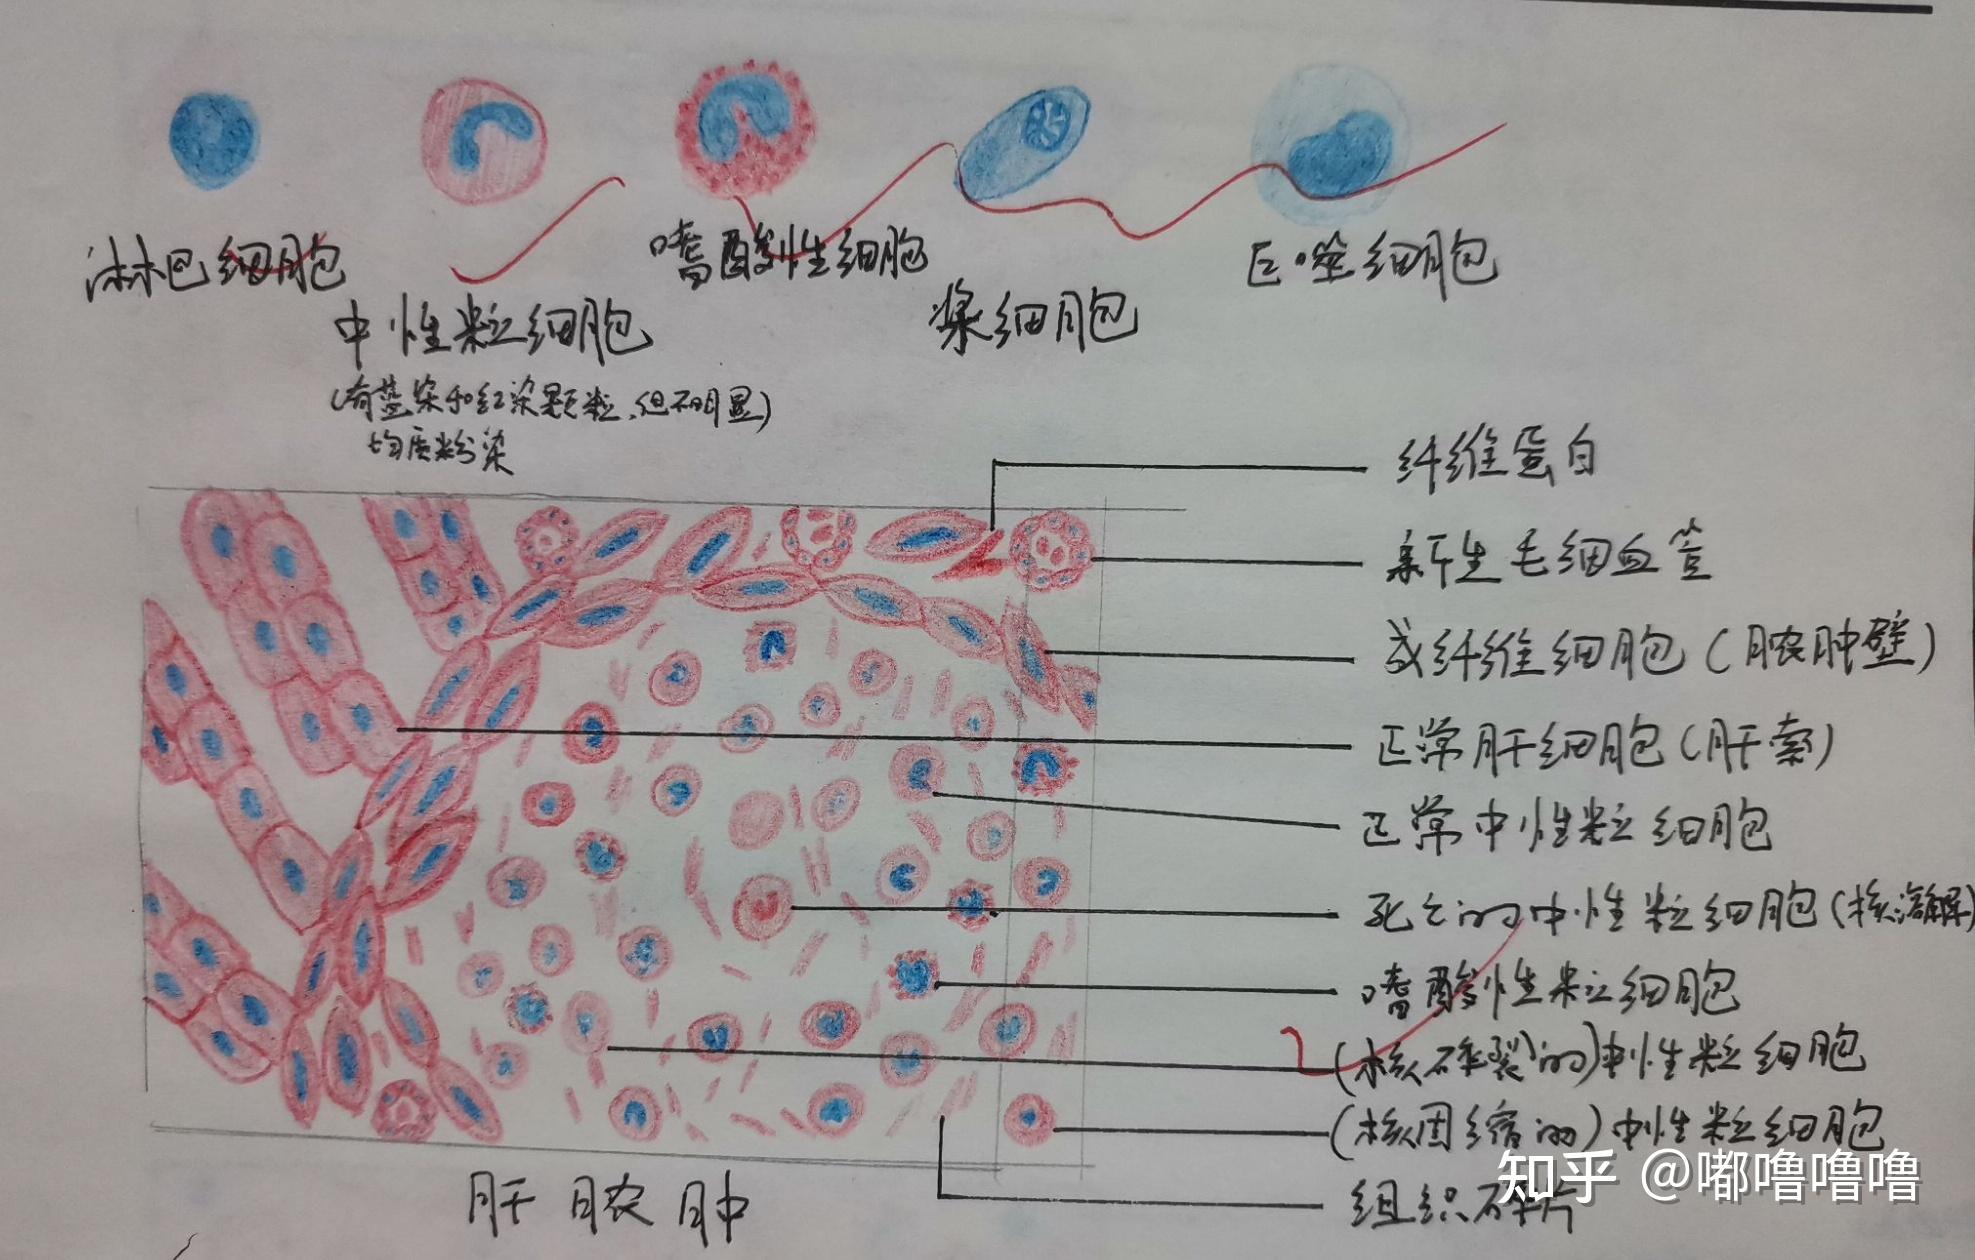 淋巴细胞
中性粒细胞
(有蓝染和红染颗粒,但不明显)
均质粉染
嗜酸性细胞
浆细胞
巨噬细胞
纤维蛋白
新生毛细血管
成纤维细胞(脓肿壁)
正常肝细胞(肝索)
正常中性粒细胞
死亡的中性粒细胞(核溶解)
嗜酸性粒细胞
(核碎裂的)中性粒细胞
(核固缩的)中性粒细胞
组织碎片
肝脓肿
知乎 @嘟噜噜噜